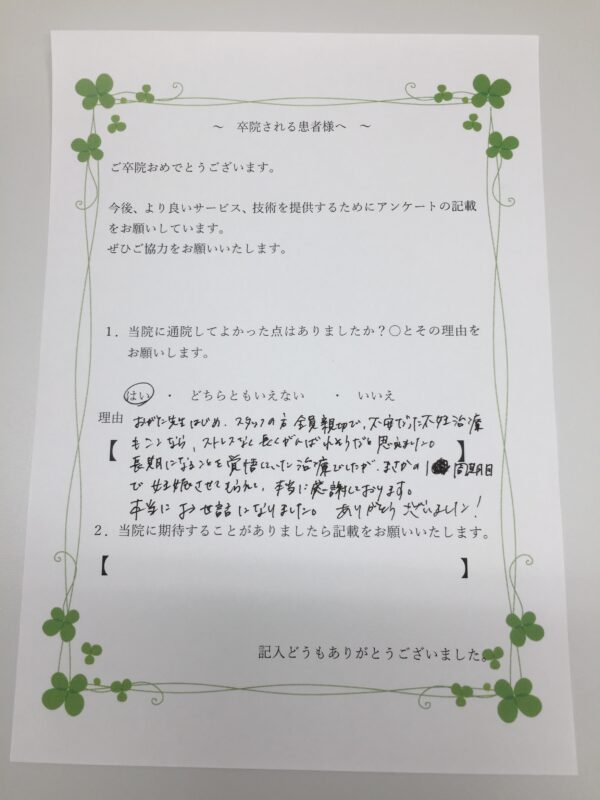 ～ 卒院される患者様へ ～
ご卒院おめでとうございます。
今後、より良いサービス、技術を提供するためにアンケートの記載
をお願いしています。
ぜひご協力をお願いいたします。
１．当院に通院してよかった点はありましたか？○とその理由を
お願いします。
はい ・ どちらともいえない ・ いいえ
理由 おがた先生はじめ、スタッフの方 全員親切で、不安だった不妊治療
【 もここなら、ストレスなく長くがんばれそうだと思えました。 】
長期になることを覚悟していた治療でしたが、まさかの1周期目
で妊娠させてもらえて、本当に感謝しております。
本当にお世話になりました。 ありがとうございました！
２．当院に期待することがありましたら記載をお願いいたします。
【 】
記入どうもありがとうございました。